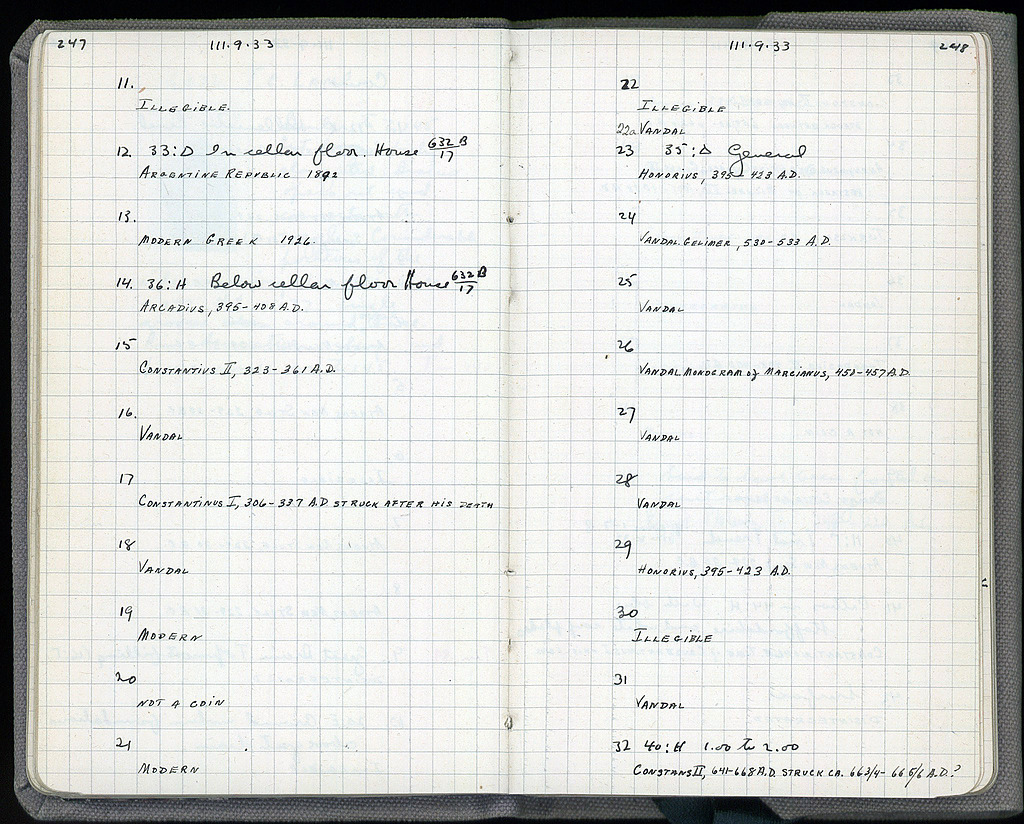 247 111.9.33
11.
ILLEGIBLE.
12. 33:Δ In cellar floor. House 632B/17
ARGENTINE REPUBLIC 1892
13.
MODERN GREEK 1926.
14. 36:H Below cellar floor House 632B/17
ARCADIUS, 395-408 A.D.
15
CONSTANTIUS II, 323-361 A.D.
16.
VANDAL
17
CONSTANTINUS I, 306-337 A.D STRUCK AFTER HIS DEATH
18
VANDAL
19
MODERN
20
NOT A COIN
21
MODERN
111.9.33 248
22
ILLEGIBLE
22a VANDAL
23 35:Δ General
HONORIUS, 395-423 A.D.
24
VANDAL. GELIMER, 530-533 A.D.
25
VANDAL
26
VANDAL MONOGRAM of MARCIANUS, 450-457 A.D.
27
VANDAL
28
VANDAL
29
HONORIUS, 395-423 A.D.
30
ILLEGIBLE
31
VANDAL
32 40:H 1.00 to 2.00
CONSTANS II, 641-668 A.D. STRUCK CA. 663/4-665/6 A.D.?